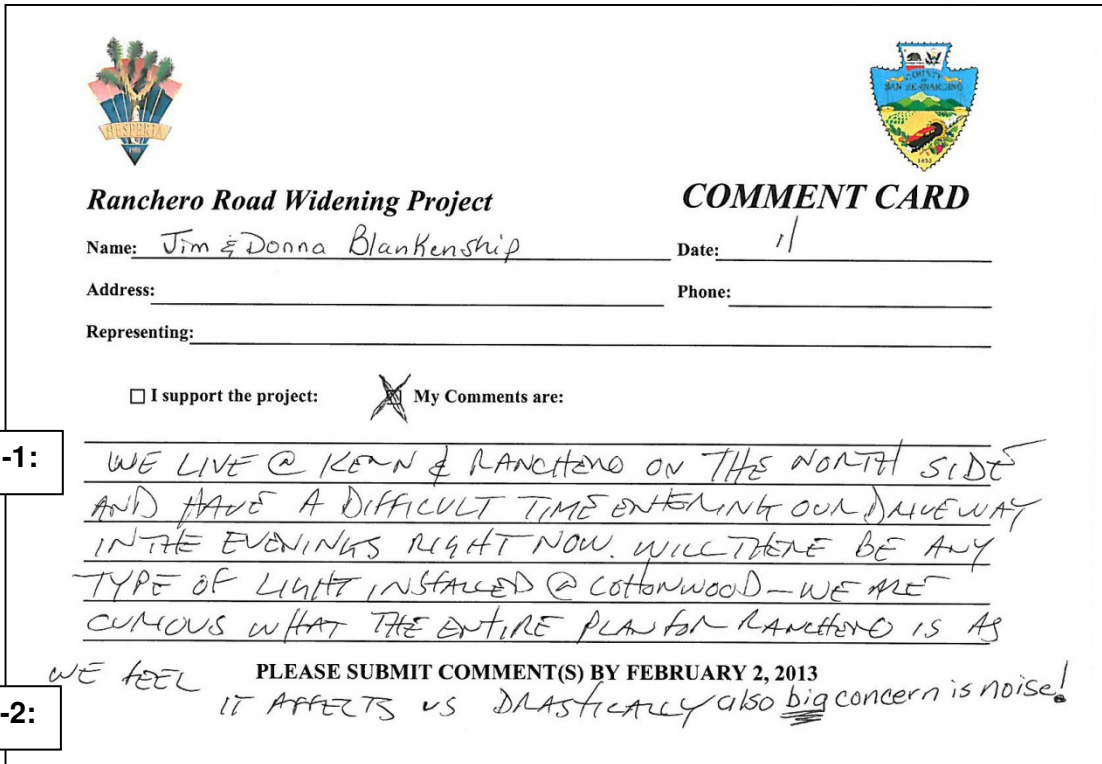 HESPERIA
1988
COUNTY
OF
SAN BERNARDINO
1853
Ranchero Road Widening Project
COMMENT CARD
Name: Jim & Donna Blankenship
Date: 1/
Address:
Phone:
Representing:
☐ I support the project:
☒ My Comments are:
-1:
WE LIVE @ KERN & RANCHERO ON THE NORTH SIDE
AND HAVE A DIFFICULT TIME ENTERING OUR DRIVEWAY
IN THE EVENINGS RIGHT NOW. WILL THERE BE ANY
TYPE OF LIGHT INSTALLED @ COTTONWOOD – WE ARE
CURIOUS WHAT THE ENTIRE PLAN FOR RANCHERO IS AS
WE FEEL
PLEASE SUBMIT COMMENT(S) BY FEBRUARY 2, 2013
IT AFFECTS US DRASTICALLY also big concern is noise!
-2: